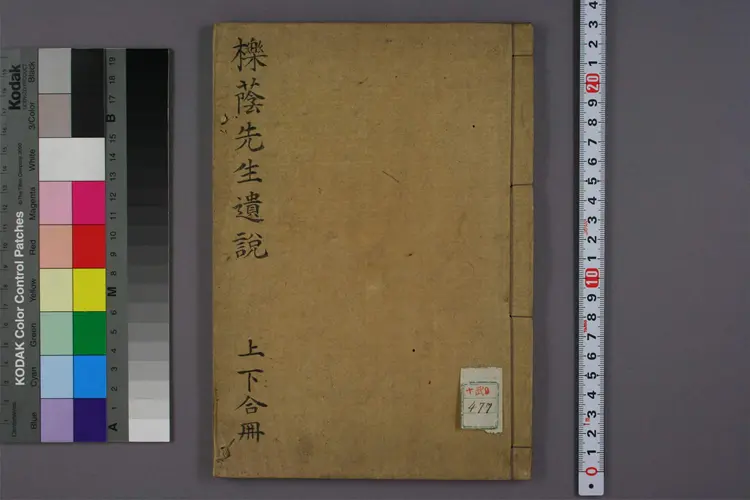 櫟蔭先生遺說
上下合冊
477
Kodak
KODAK Color Control Patches
Blue
Cyan
Green
Yellow
Red
Magenta
White
3/Color
Black
A 1 2 3 4 5 6 M 8 9 10 11 12 13 14 15 B 17 18 19
0 1 2 3 4 5 6 7 8 9 10 1 2 3 4 5 6 7 8 9 20 1 2 3 4